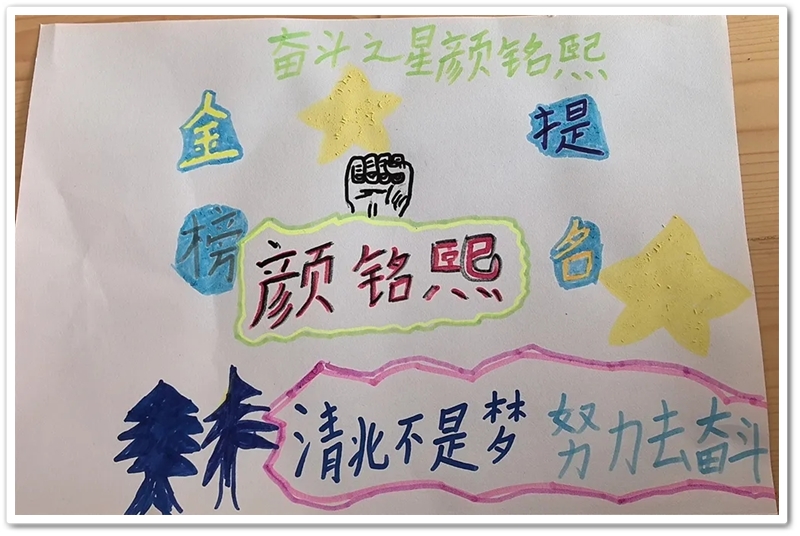 奋斗之星颜铭熙
金榜
提名
颜铭熙
清北不是梦 努力去奋斗